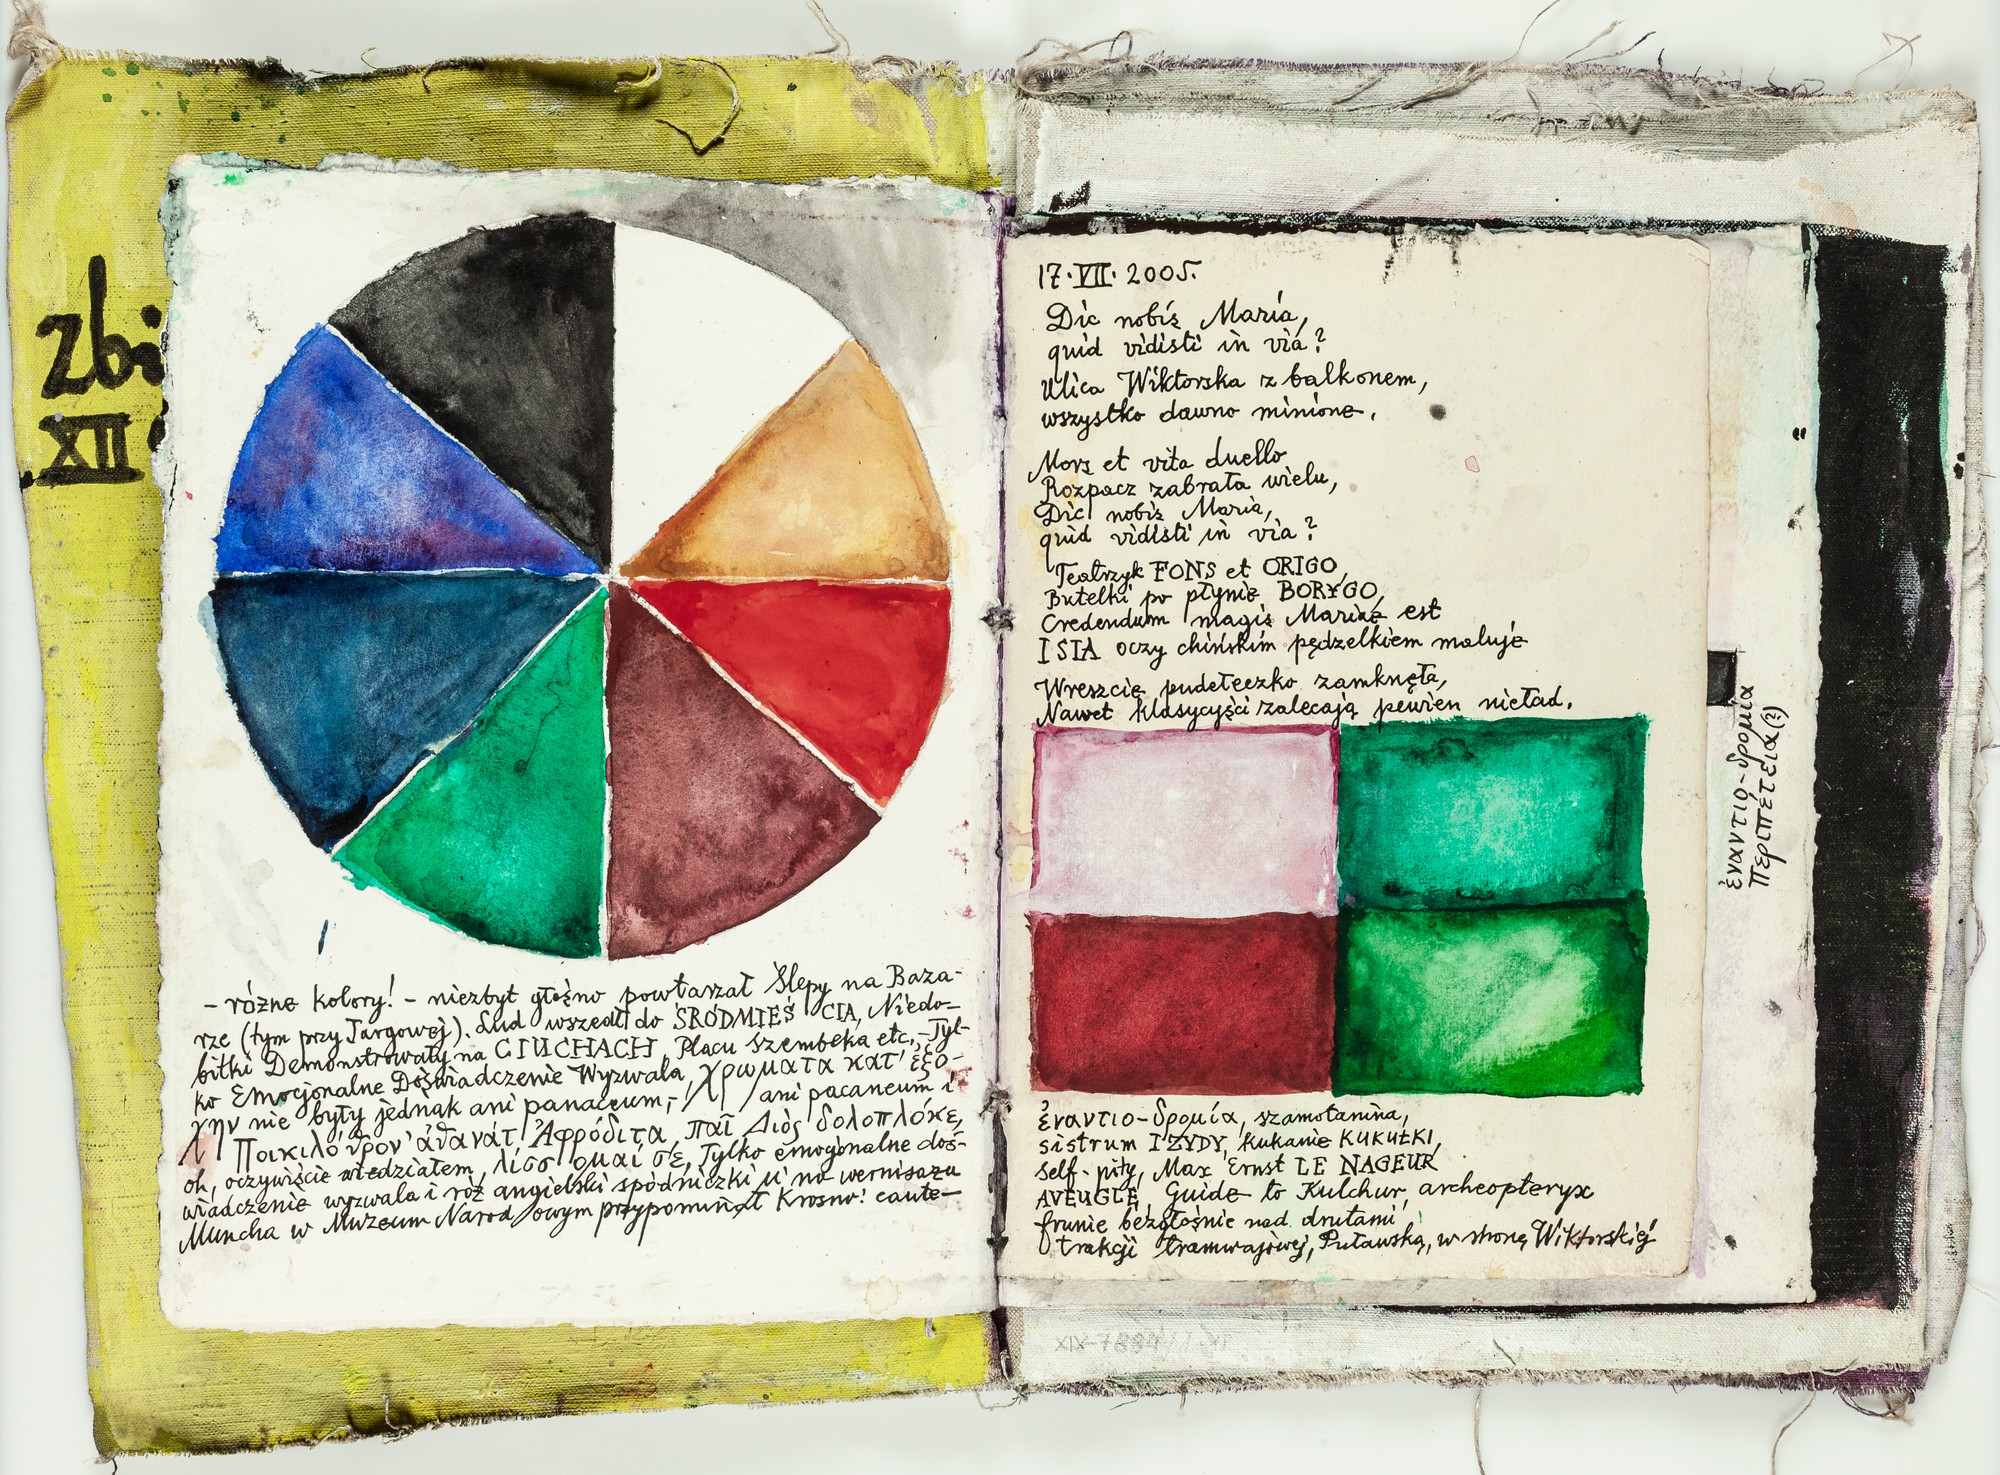 zbi
XII
- różne kolory! - niezbyt głośno powtarzał Ślepy na Baza-
rze (tym przy Targowej). Lud wszedł do ŚRÓDMIEŚCIA, Niedo-
bitki Demonstrowały na CIUCHACH, Placu Szembeka etc., - Tyl-
ko Emocjonalne Doświadczenie Wyzwala, χρωματα κατ' ἐξο-
χην nie były jednak ani panaceum, - / ani pacaneum i
Ποικιλόθρον' ἀθανάτ' Ἀφρόδιτα, παῖ Δίος δολοπλόκε,
oh, oczywiście wiedziałem, λίσσομαί σε, Tylko emocjonalne doś-
wiadczenie wyzwala i róż angielski spódniczki
Muncha w Muzeum Narodowym przypominał Krosno! caute-
17·VII·2005.
Dic nobis Maria,
quid vidisti in via?
Ulica Wiktorska z balkonem,
wszystko dawno minione.
Mors et vita duello
Rozpacz zabrała wielu,
Dic nobis Maria,
quid vidisti in via?
Teatrzyk FONS et ORIGO,
Butelki po płynie BORYGO,
Credendum magis Mariae est
ISIA oczy chińskim pędzelkiem maluje
Wreszcie pudełeczko zamknęła,
Nawet klasycyści zalecają pewien nieład.
ἐναντιο-δρομία, szamotanina,
sistrum IZYDY, kukanie KUKUŁKI,
self-pity, Max Ernst LE NAGEUR
AVEUGLE, Guide to Kulchur, archeopteryx
frunie bezgłośnie nad drutami
trakcji tramwajowej, Puławską, w stronę Wiktorskiej
ἐναντιο-δρομία
περιπέτεια(?)